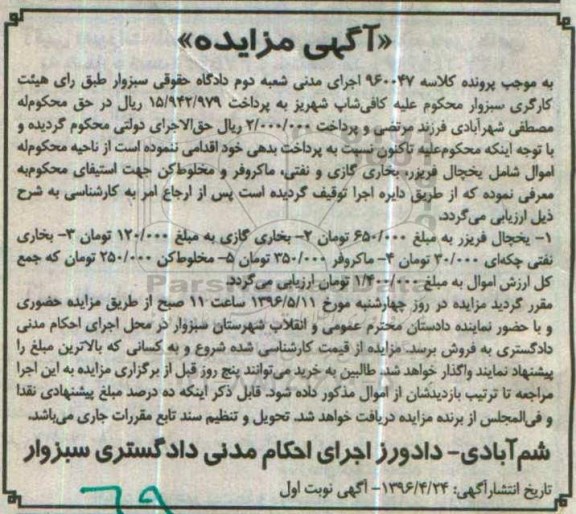 «آگهی مزایده»
به موجب پرونده کلاسه ۹۶۰۰۴۷ اجرای مدنی شعبه دوم دادگاه حقوقی سبزوار طبق رای هیئت
کارگری سبزوار محکوم علیه کافی‌شاپ شهریز به پرداخت ۱۵/۹۴۲/۹۷۹ ریال در حق محکوم‌له
مصطفی شهرآبادی فرزند مرتضی و پرداخت ۲/۰۰۰/۰۰۰ ریال حق‌الاجرای دولتی محکوم گردیده و
با توجه اینکه محکوم‌علیه تاکنون نسبت به پرداخت بدهی خود اقدامی ننموده است از ناحیه محکوم‌له
اموال شامل یخچال فریزر، بخاری گازی و نفتی، ماکروفر و مخلوط‌کن جهت استیفای محکوم‌به
معرفی نموده که از طریق دایره اجرا توقیف گردیده است پس از ارجاع امر به کارشناسی به شرح
ذیل ارزیابی می‌گردد.
۱- یخچال فریزر به مبلغ ۶۵۰/۰۰۰ تومان ۲- بخاری گازی به مبلغ ۱۲۰/۰۰۰ تومان ۳- بخاری
نفتی چکه‌ای ۳۰/۰۰۰ تومان ۴- ماکروفر ۳۵۰/۰۰۰ تومان ۵- مخلوط‌کن ۲۵۰/۰۰۰ تومان که جمع
کل ارزش اموال به مبلغ ۱/۴۰۰/۰۰۰ تومان ارزیابی می‌گردد.
مقرر گردید مزایده در روز چهارشنبه مورخ ۱۳۹۶/۵/۱۱ ساعت ۱۱ صبح از طریق مزایده حضوری
و با حضور نماینده دادستان محترم عمومی و انقلاب شهرستان سبزوار در محل اجرای احکام مدنی
دادگستری به فروش برسد. مزایده از قیمت کارشناسی شده شروع و به کسانی که بالاترین مبلغ را
پیشنهاد نمایند واگذار خواهد شد. طالبین به خرید می‌توانند پنج روز قبل از برگزاری مزایده به این اجرا
مراجعه تا ترتیب بازدیدشان از اموال مذکور داده شود. قابل ذکر اینکه ده درصد مبلغ پیشنهادی نقدا
و فی‌المجلس از برنده مزایده دریافت خواهد شد. تحویل و تنظیم سند تابع مقررات جاری می‌باشد.
شم‌آبادی- دادورز اجرای احکام مدنی دادگستری سبزوار
تاریخ انتشارآگهی: ۱۳۹۶/۴/۲۴- آگهی نوبت اول
۶۹